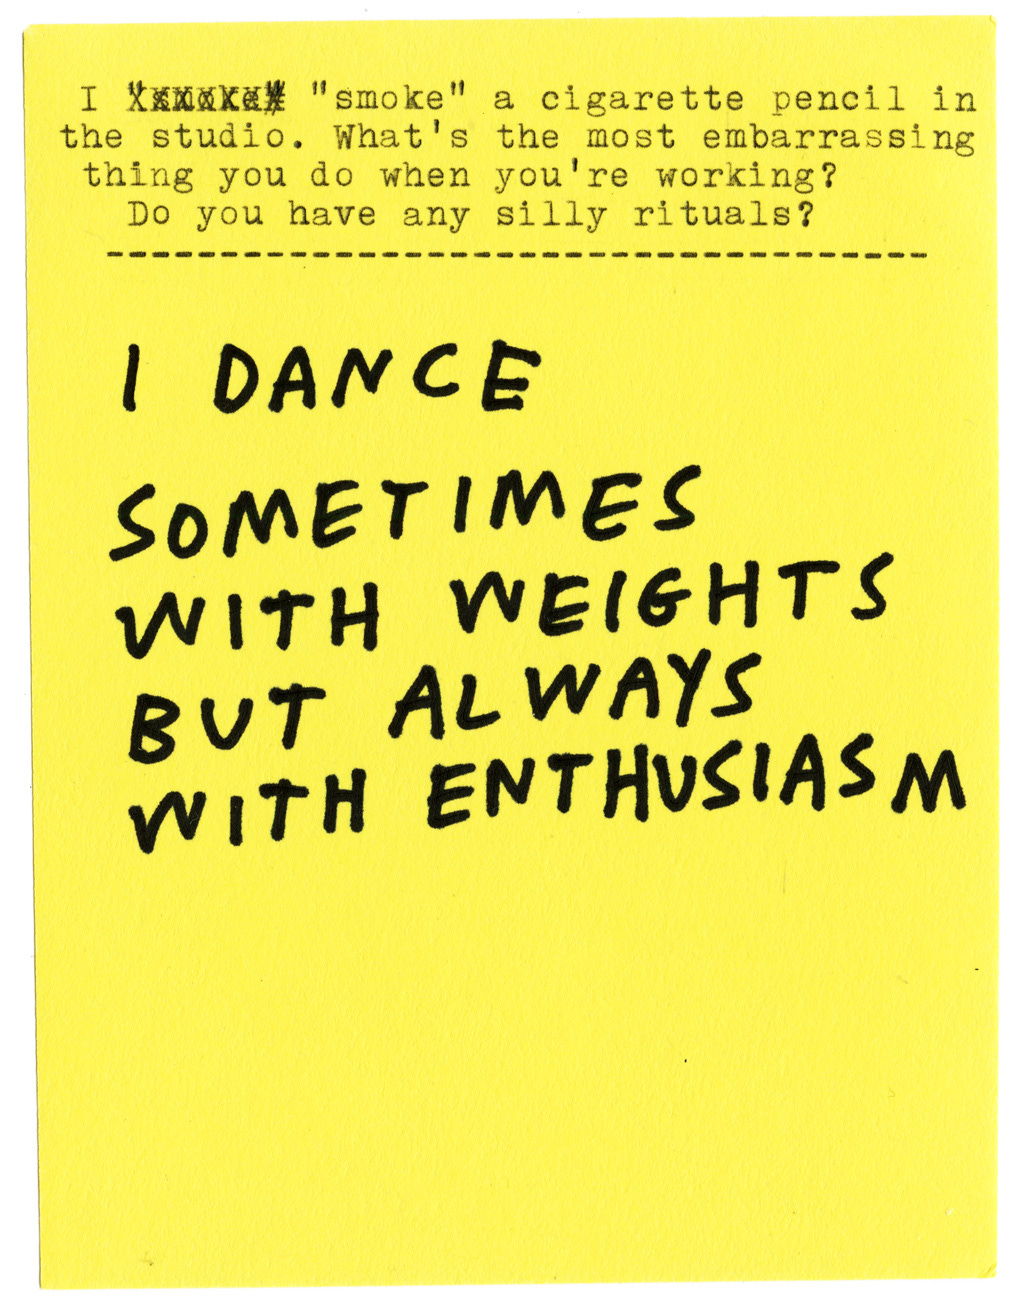 I "smoke" "smoke" a cigarette pencil in
the studio. What's the most embarrassing
thing you do when you're working?
Do you have any silly rituals?
------------------------------------
I DANCE
SOMETIMES
WITH WEIGHTS
BUT ALWAYS
WITH ENTHUSIASM